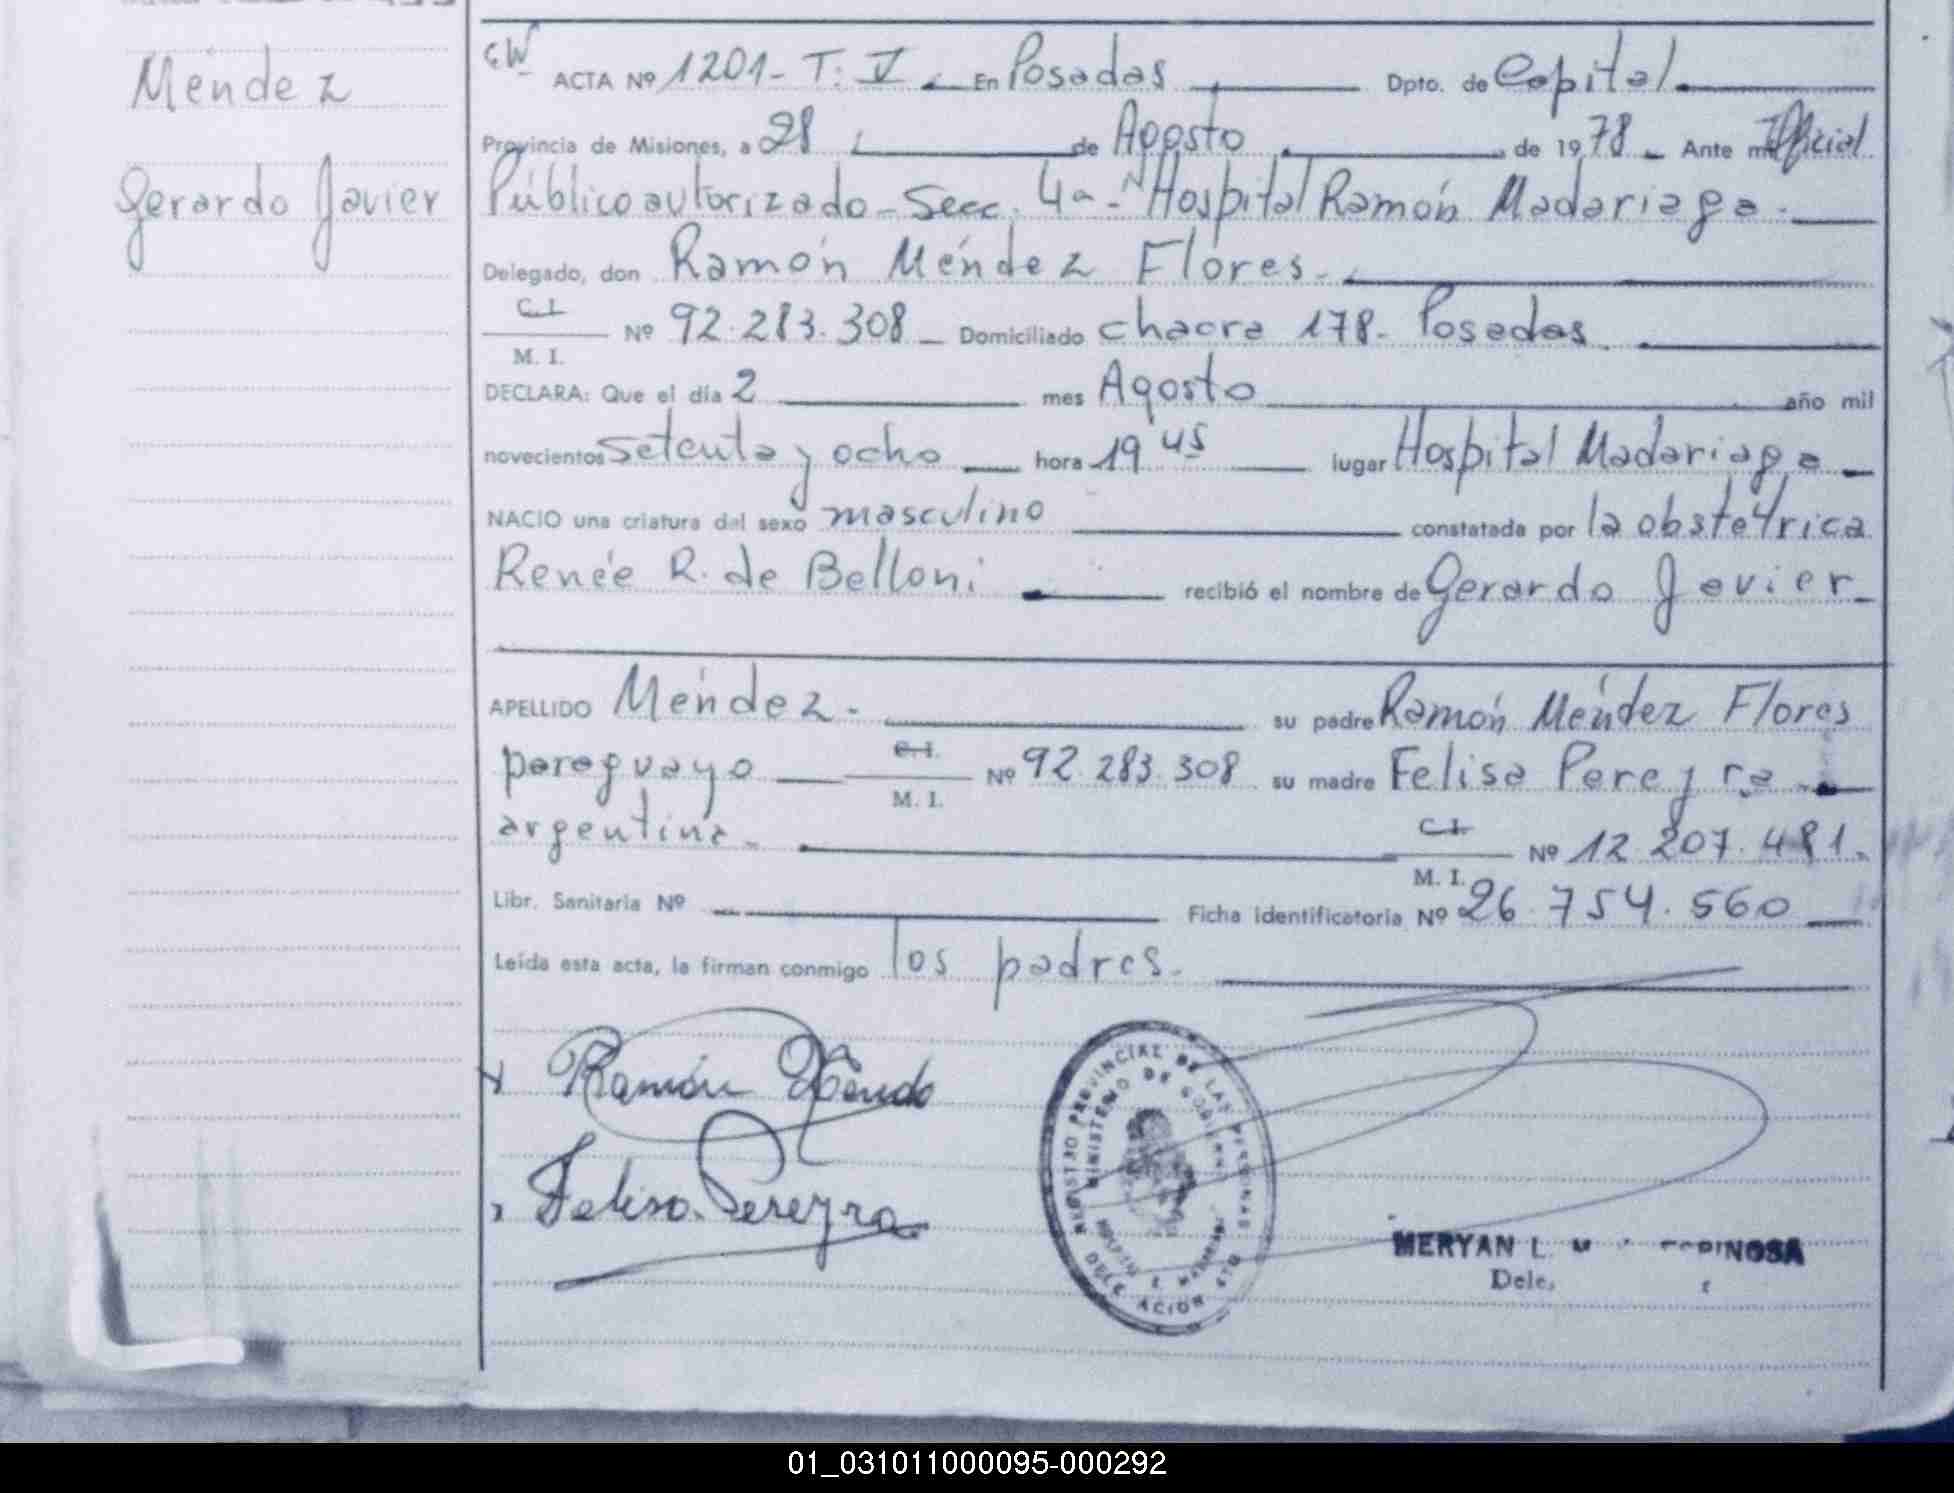 Méndez
Gerardo Javier
ACTA Nº 1201- T: V. En Posadas Dpto. de Capital
Provincia de Misiones, a 28 de Agosto de 1978 Ante mí Oficial
Público autorizado - Secc. 4a - Hospital Ramón Madariaga.
Delegado, don Ramón Méndez Flores.
C.I.
M. I.
Nº 92.283.308 Domiciliado chacra 178. Posadas
DECLARA: Que el día 2 mes Agosto año mil
novecientos setenta y ocho hora 19 45 lugar Hospital Madariaga
NACIO una criatura del sexo masculino constatada por la obstetrica
Renée R. de Belloni recibió el nombre de Gerardo Javier
APELLIDO Méndez. su padre Ramón Méndez Flores
C.I.
paraguayo Nº 92.283.308 su madre Felisa Pereyra
M. I.
argentina. C.I. Nº 12.207.481.
M. I.
Libr. Sanitaria Nº Ficha identificatoria Nº 26.754.560
Leída esta acta, la firman conmigo los padres.
Ramón
Felisa Pereyra
REGISTRO PROVINCIAL DE LAS PERSONAS
MINISTERIO DE GOBIERNO
MERYAN L. ESPINOSA
01_031011000095-000292